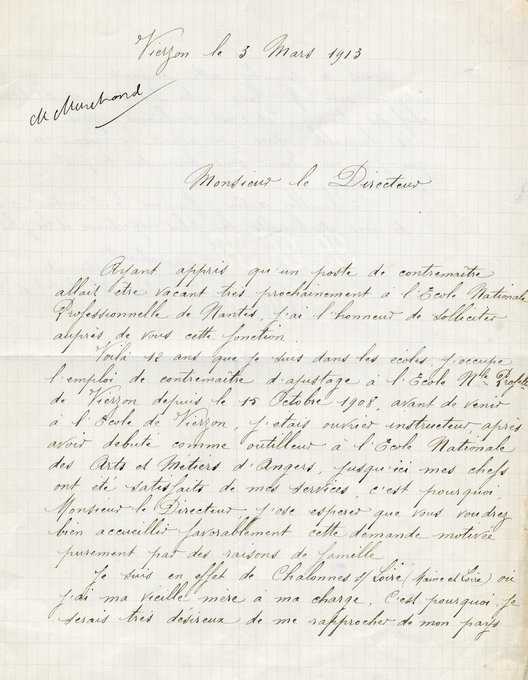 Vierzon le 3 Mars 1913
M Marchand
Monsieur le Directeur
Ayant appris qu'un poste de contremaître
allait être vacant très prochainement à l'Ecole Nationale
Professionnelle de Nantes, j'ai l'honneur de solliciter
auprès de vous cette fonction.
Voilà 12 ans que je suis dans les écoles, j'occupe
l'emploi de contremaître d'ajustage à l'Ecole Nle Profelle
de Vierzon depuis le 15 Octobre 1908, avant de venir
à l'Ecole de Vierzon, j'étais ouvrier instructeur, après
avoir débuté comme outilleur à l'Ecole Nationale
des Arts et Métiers d'Angers, jusqu'ici mes chefs
ont été satisfaits de mes services, c'est pourquoi,
Monsieur le Directeur, j'ose espérer que vous voudrez
bien accueillir favorablement cette demande motivée
purement par des raisons de famille
Je suis en effet de Chalonnes s/ Loire (Maine et Loire) où
j'ai ma vieille mère a ma charge. C'est pourquoi je
serais très désireux de me rapprocher de mon pays